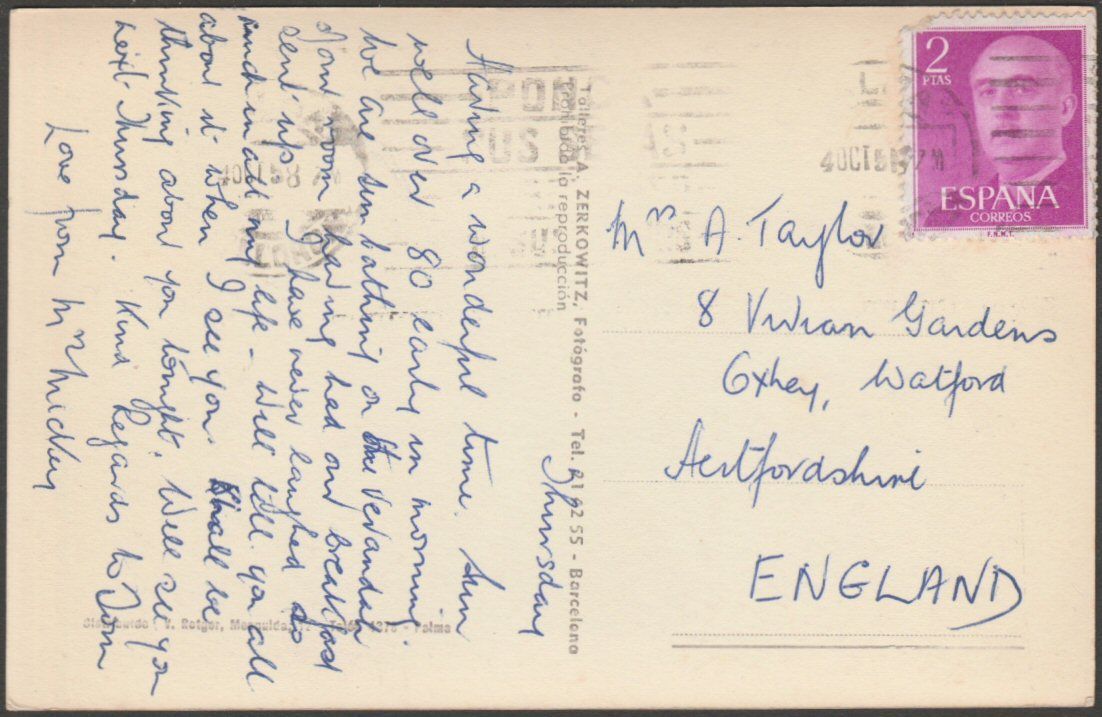 Thursday
Having a wonderful time. Sun
well over 80 early in morning.
We are sunbathing on the Verandah
of our room having had our breakfast
sent up. I have never laughed so
much in all my life - Will tell you all
about it when I see you. Shall be
thinking about you tonight. Will see you
next Thursday. Kind Regards to Tom
Love from
Mrs A. Taylor
8 Vivian Gardens
Oxhey, Watford
Hertfordshire
ENGLAND
2
PTAS
ESPAÑA
CORREOS
F.N.M.T.
4 OCT 58 7 M
4 OCT 58 7 M
Talleres A. ZERKOWITZ, Fotógrafo - Tel. 21 92 55 - Barcelona
Prohibida la reproducción
V. Rotger, - Palma